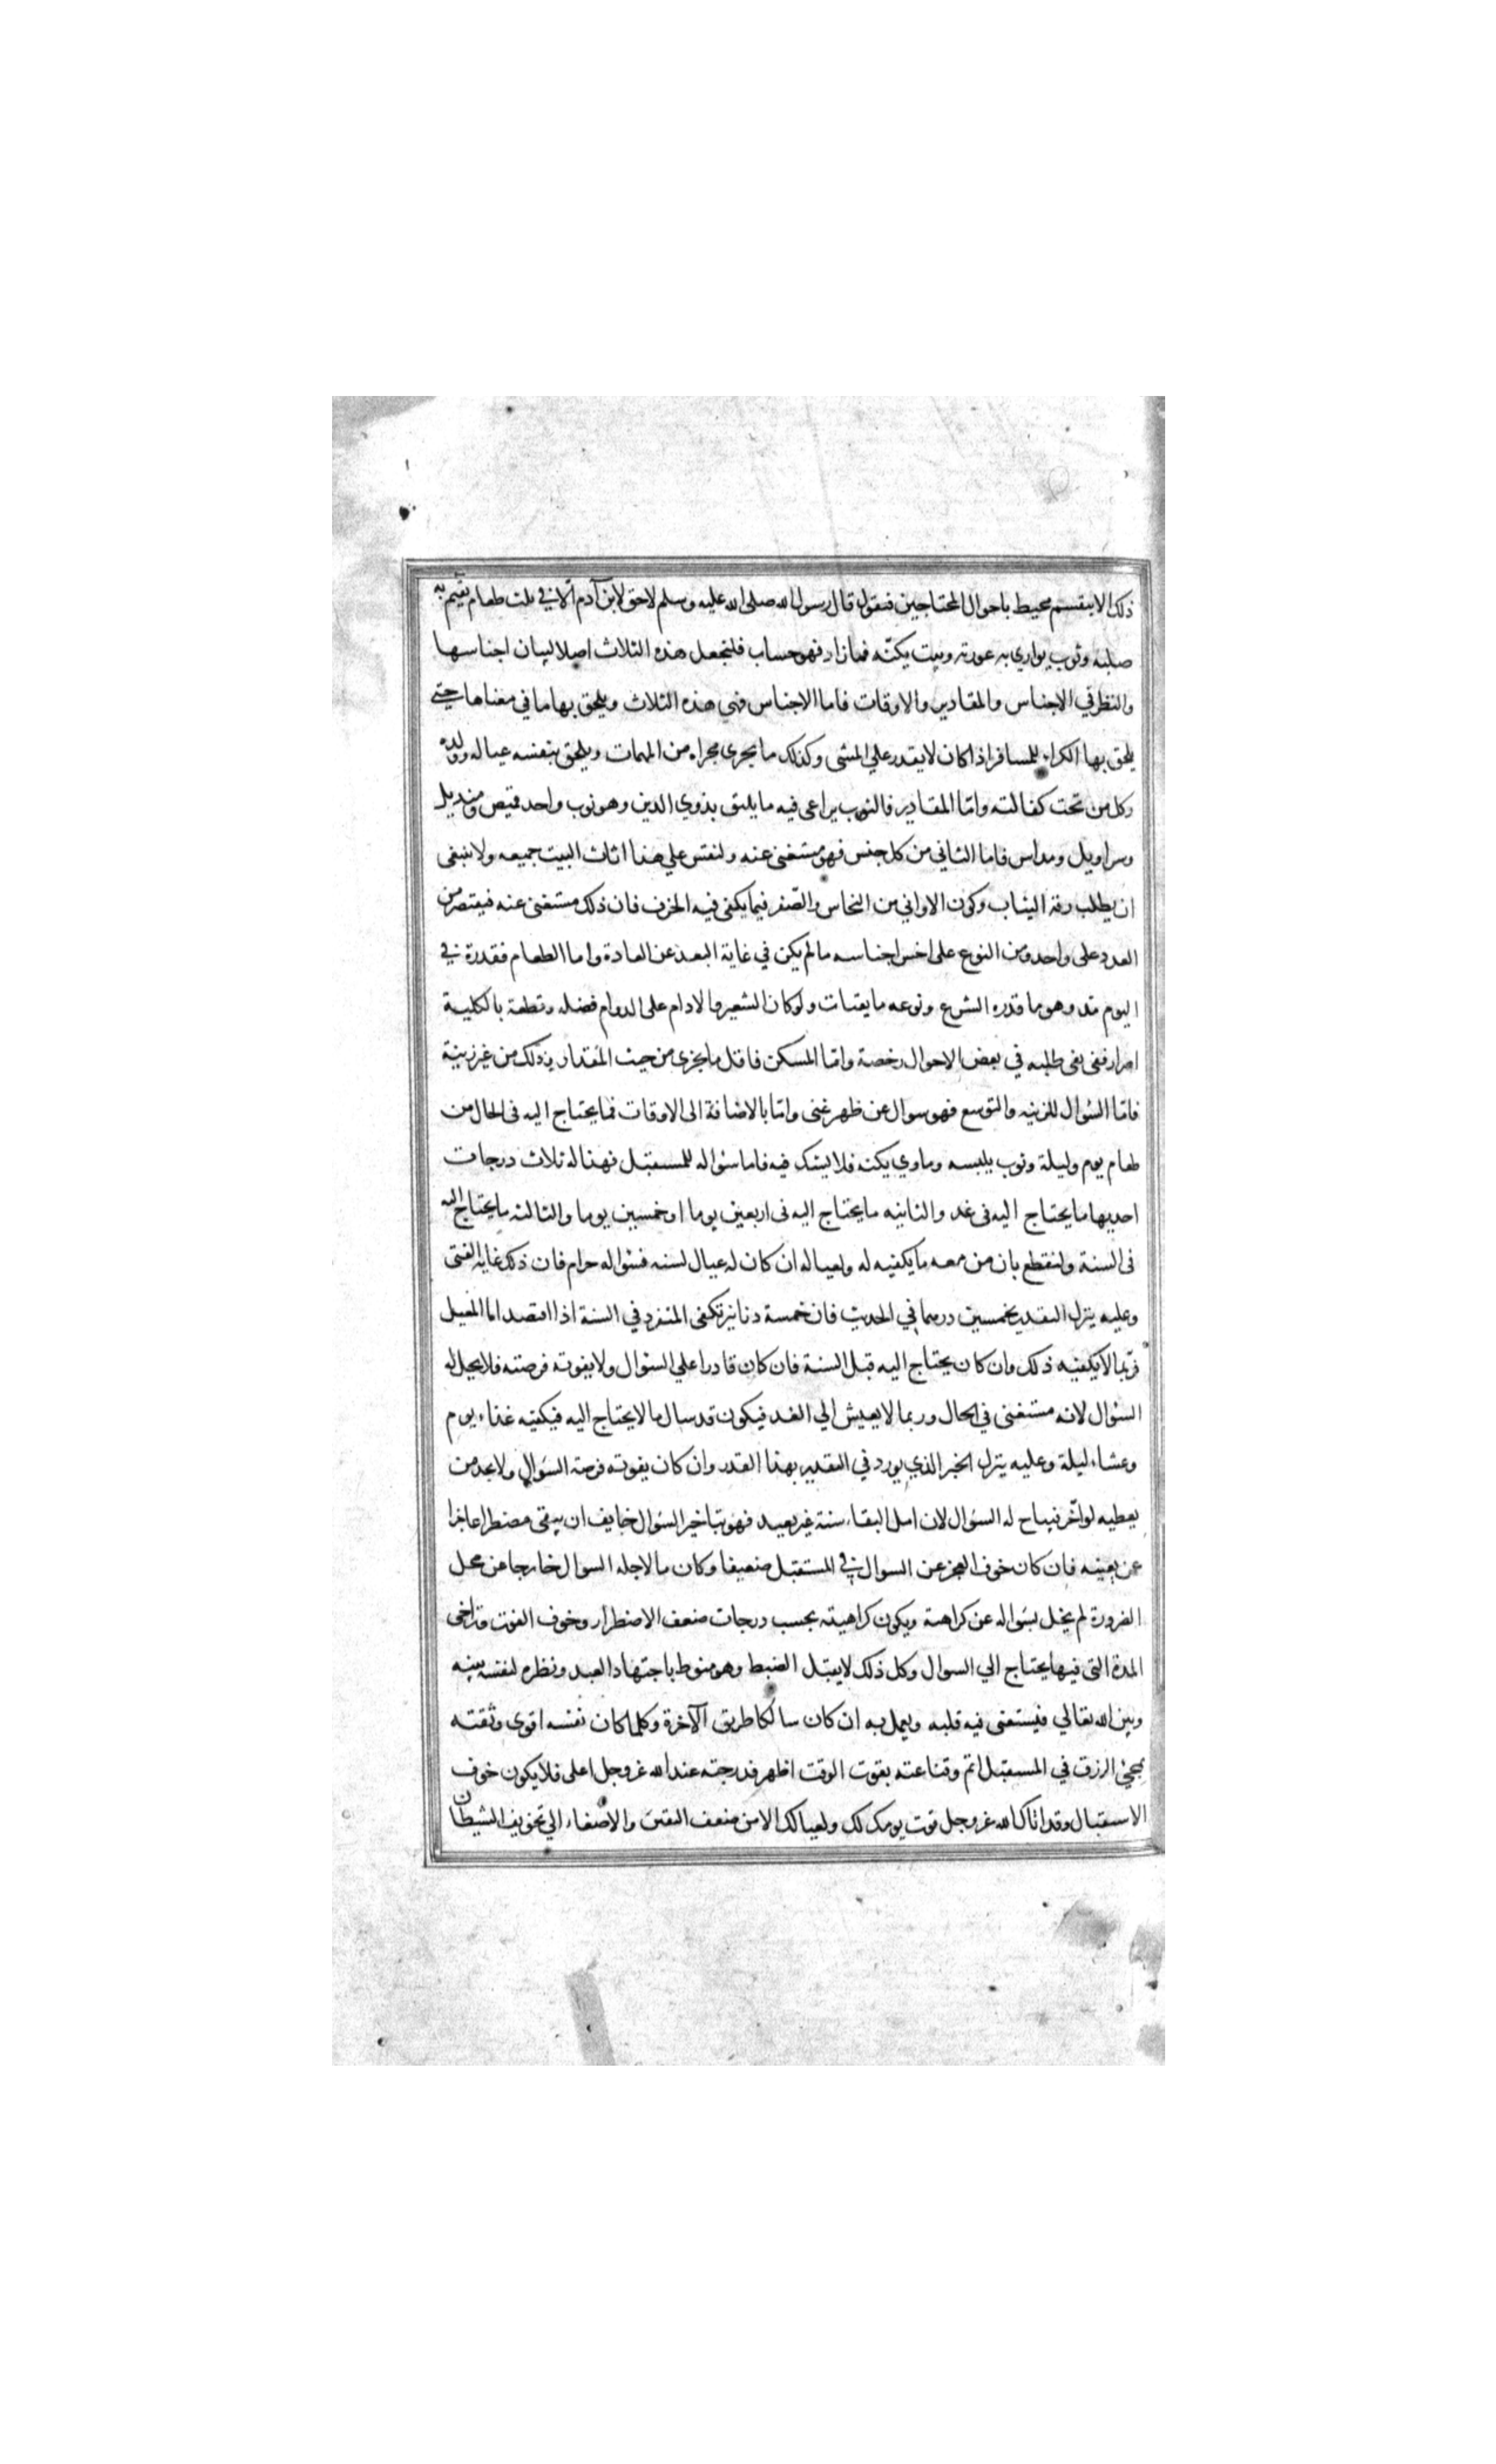 ذلك الا بتقسيم محيط باحوال المحتاجين فنقول قال رسول الله صلى الله عليه وسلم لا حق لابن آدم الا في ثلث طعام يقيم به
صلبه وثوب يواري به عورته وبيت يكنّه فما زاد فهو حساب فلنجعل هذه الثلاث اصلا لبيان اجناسها
والنظر في الاجناس والمقادير والاوقات فاما الاجناس فهي هذه الثلاث ويلحق بها ما في معناها حتى
يلحق بها الكراء للمسافر اذا كان لا يقدر علي المشي وكذلك ما يجرى مجراه من المهمات ويلحق بنفسه عياله وولده
وكل من تحت كفالته وامّا المقادير فالثوب يراعى فيه ما يليق بذوي الدين وهو ثوب واحد قميص ومنديل
وسراويل ومداس فاما الثاني من كل جنس فهو مستغنى عنه ولنقس علي هذا اثاث البيت جميعه ولا ينبغى
ان يطلب رقة الثياب وكون الاواني من النحاس والصّفر فيما يكفى فيه الخزف فان ذلك مستغنى عنه فيقتصر من
العدد على واحد ومن النوع على اخس اجناسه ما لم يكن في غاية البعد عن العادة واما الطعام فقدرة في
اليوم مد وهو ما قدره الشرع ونوعه ما يقتات ولو كان الشعير والادام على الدوام فضله وقطعه بالكلية
اضرار ففى طلبه في بعض الاحوال رخصة وامّا المسكن فاقله ما يجزى من حيث المقدار وذلك من غير زينة
فامّا السؤال للزينه والتوسع فهو سوال عن ظهر غنى وامّا بالاضافة الى الاوقات فما يحتاج اليه فى الحال من
طعام يوم وليلة وثوب يلبسه وماوي يكنه فلا يشك فيه فاما سؤاله للمستقبل فهذا له ثلاث درجات
احديها ما يحتاج اليه فى غد والثانيه ما يحتاج اليه فى اربعين يوما او خمسين يوما والثالثه ما يحتاج اليه
فى السنة ولنقطع بان من معه ما يكفيه له ولعياله ان كان له عيال لسنه فسؤاله حرام فان ذلك غاية الغنى
وعليه ينزل التقدير بخمسين درهما في الحديث فان خمسة دنانير تكفى المنفرد في السنة اذا اقتصد اما المعيل
فربّما لا يكفيه ذلك وان كان يحتاج اليه قبل السنة فان كان قادرا علي السؤال ولا يفوته فرصته فلا يحل له
السئوال لانه مستغنى في الحال وربما لا يعيش الي الغد فيكون قد سال ما لا يحتاج اليه فيكفيه غذاء يوم
وعشاء ليلة وعليه ينزل الخبر الذي يورد في التقدير بهذا القدر وان كان يفوته فرصة السؤال ولا يجد من
يعطيه لو اخّر فيباح له السئوال لان امل البقاء سنة غير بعيد فهو بتاخير السئوال خايف ان يبقى مضطرا عاجزا
عن يعينه فان كان خوف العجز عن السوال في المستقبل ضعيفا وكان ما لاجله السوال خارجا عن محل
الضرورة لم يخل سؤاله عن كراهة ويكون كراهيته بحسب درجات ضعف الاضطرار وخوف الفوت وتراخى
المدة التى فيها يحتاج الي السوال وكل ذلك لا يقبل الضبط وهو منوط باجتهاد العبد ونظره لنفسه بينه
وبين الله تعالي فيستفتى فيه قلبه ويعمل به ان كان سالكا طريق الآخرة وكلما كان نفسه اقوى وثقته
بمجئ الرزق في المستقبل اتم وقناعته بقوت الوقت اظهر فدرجته عند الله عز وجل اعلى فلا يكون خوف
الاستقبال وقد اتاك الله عز وجل قوت يومك لك ولعيالك الا من ضعف اليقين والاصغاء الي تخويف الشيطان